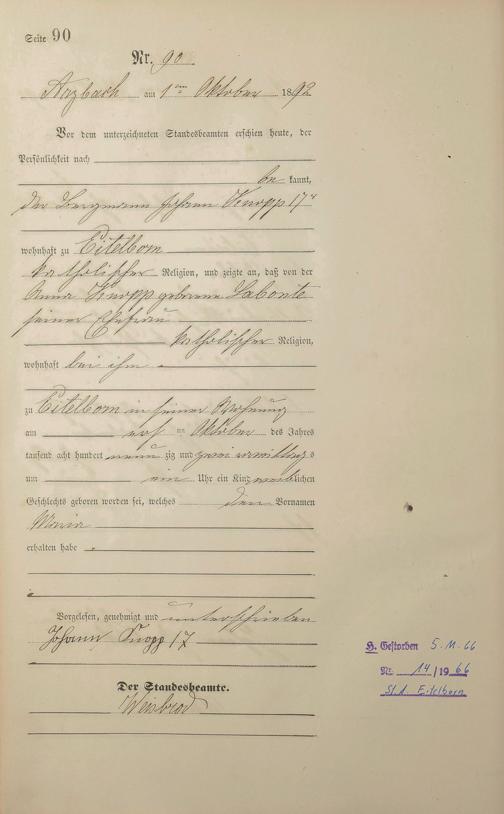 Seite 90
Nr. 90.
Arzbach am 1ten Oktober 1892
Vor dem unterzeichneten Standesbeamten erschien heute, der
Persönlichkeit nach
be kannt,
der Bergmann Johann Knopp 17r
wohnhaft zu Eitelborn
katholischer Religion, und zeigte an, daß von der
Anna Knopp geborene Labonte
seiner Ehefrau
katholischer Religion,
wohnhaft bei ihm
zu Eitelborn in seiner Wohnung
am ersten Oktober des Jahres
tausend acht hundert neunzig und zwei vormittags
um ein Uhr ein Kind weiblichen
Geschlechts geboren worden sei, welches den Vornamen
Maria
erhalten habe.
Vorgelesen, genehmigt und unterschrieben
Johann Knopp 17
Der Standesbeamte.
Weisbrod
H. Gestorben 5.11.66
Nr. 14/1966
St.A. Eitelborn